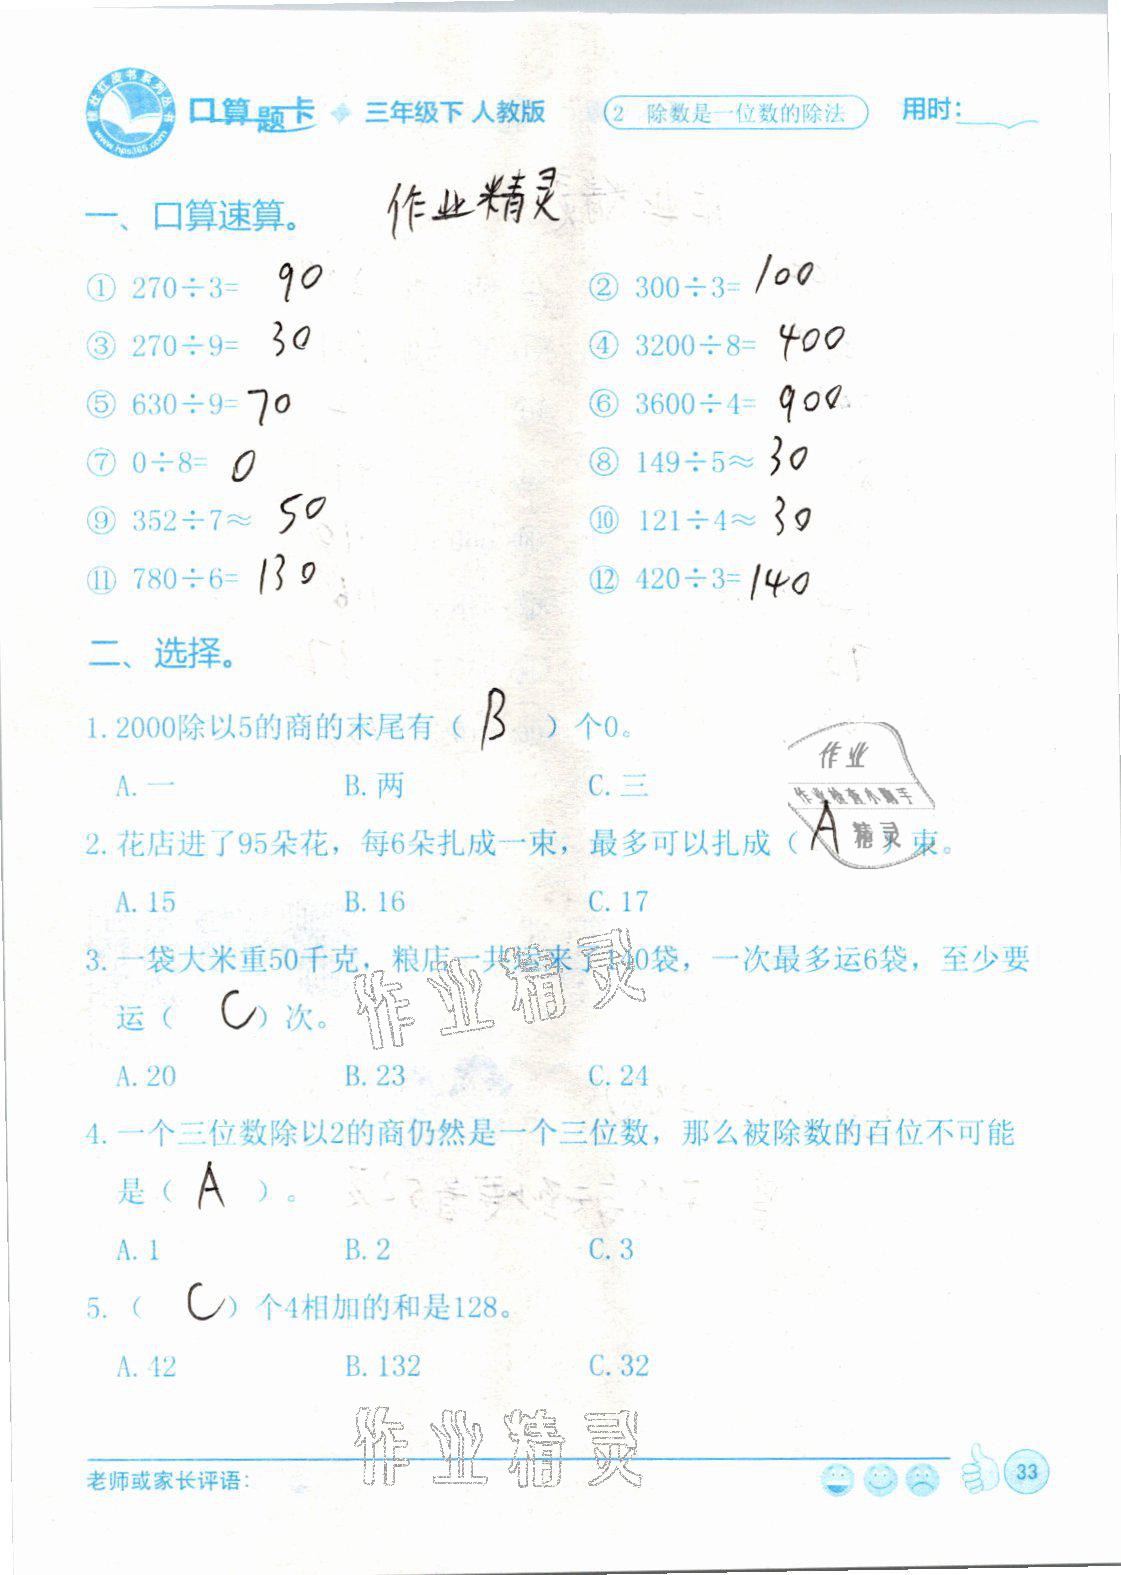 植壮红皮书系列丛书
www.hps365.com
口算题卡 三年级下 人教版 2 除数是一位数的除法 用时:
一、口算速算。 作业精灵
① 270÷3= 90 ② 300÷3= 100
③ 270÷9= 30 ④ 3200÷8= 400
⑤ 630÷9= 70 ⑥ 3600÷4= 900
⑦ 0÷8= 0 ⑧ 149÷5≈ 30
⑨ 352÷7≈ 50 ⑩ 121÷4≈ 30
⑪ 780÷6= 130 ⑫ 420÷3= 140
二、选择。
1. 2000除以5的商的末尾有( B )个0。
A. 一 B. 两 C. 三
作业
作业检查小助手
精灵
2. 花店进了95朵花，每6朵扎成一束，最多可以扎成( A )束。
A. 15 B. 16 C. 17
3. 一袋大米重50千克，粮店一共运来了140袋，一次最多运6袋，至少要
运( C )次。
作业精灵
A. 20 B. 23 C. 24
4. 一个三位数除以2的商仍然是一个三位数，那么被除数的百位不可能
是( A )。
A. 1 B. 2 C. 3
5. ( C )个4相加的和是128。
A. 42 B. 132 C. 32
作业精灵
老师或家长评语: 33